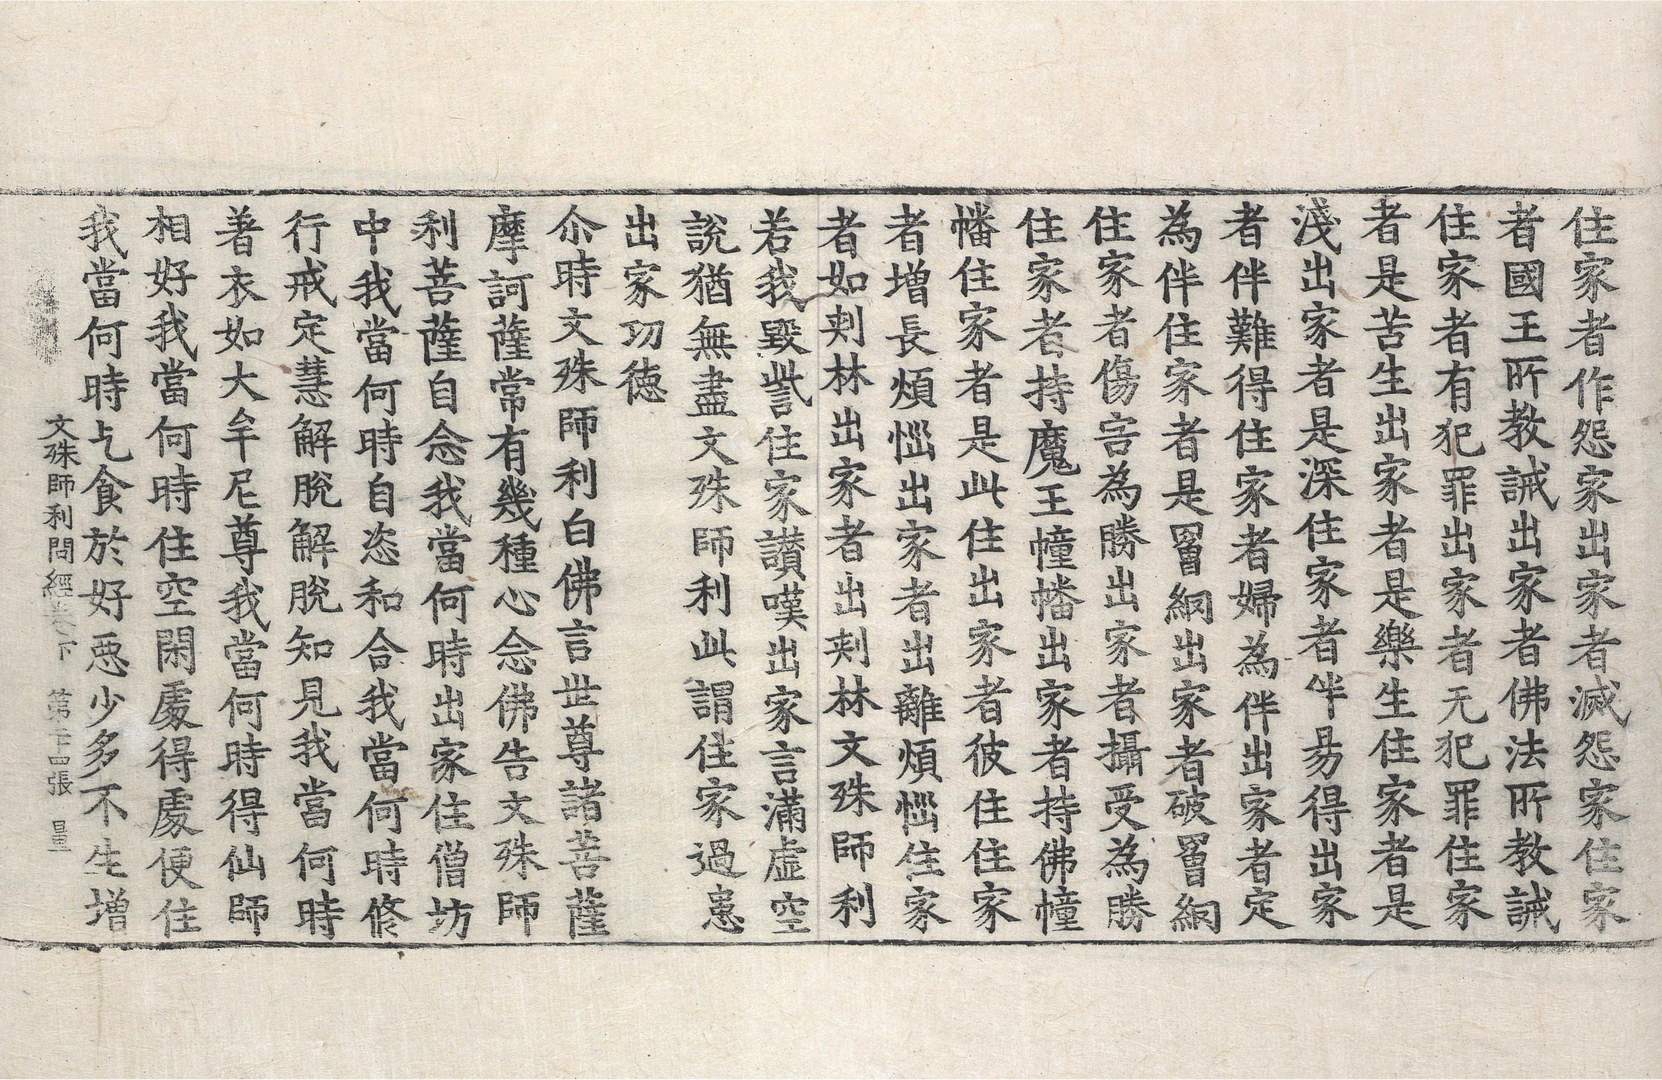 住家者作怨家出家者滅怨家住家
者國王所教誡出家者佛法所教誡
住家者有犯罪出家者无犯罪住家
者是苦生出家者是樂生住家者是
淺出家者是深住家者伴易得出家
者伴難得住家者婦為伴出家者定
為伴住家者是罥網出家者破罥網
住家者傷害為勝出家者攝受為勝
住家者持魔王幢幡出家者持佛幢
幡住家者是此住出家者彼住住家
者增長煩惱出家者出離煩惱住家
者如刾林出家者出刾林文殊師利
若我毀呰住家讃嘆出家言滿虛空
說猶無盡文殊師利此謂住家過患
出家功德
尒時文殊師利白佛言世尊諸菩薩
摩訶薩常有幾種心念佛告文殊師
利菩薩自念我當何時出家住僧坊
中我當何時自恣和合我當何時修
行戒定慧解脫解脫知見我當何時
著衣如大牟尼尊我當何時得仙師
相好我當何時住空閑處得處便住
我當何時乞食於好惡少多不生增
文殊師利問經卷下 第二十四張 量